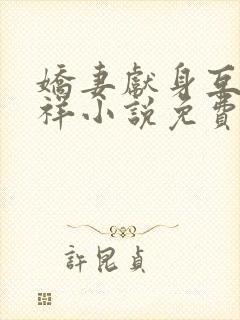 嬌妻獻身互
祥小說免費
許昆貞